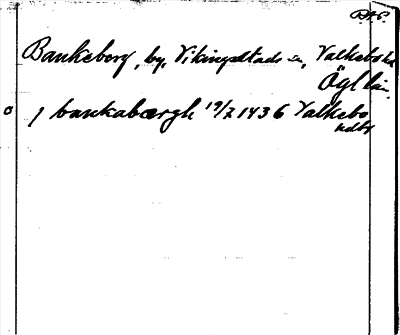 R.A.P.
Bankeberg, by, Vikingstads sn, Valkebo hd
Ögl län.
o j bankabærgh 19/7 1436 Valkebo
hdby